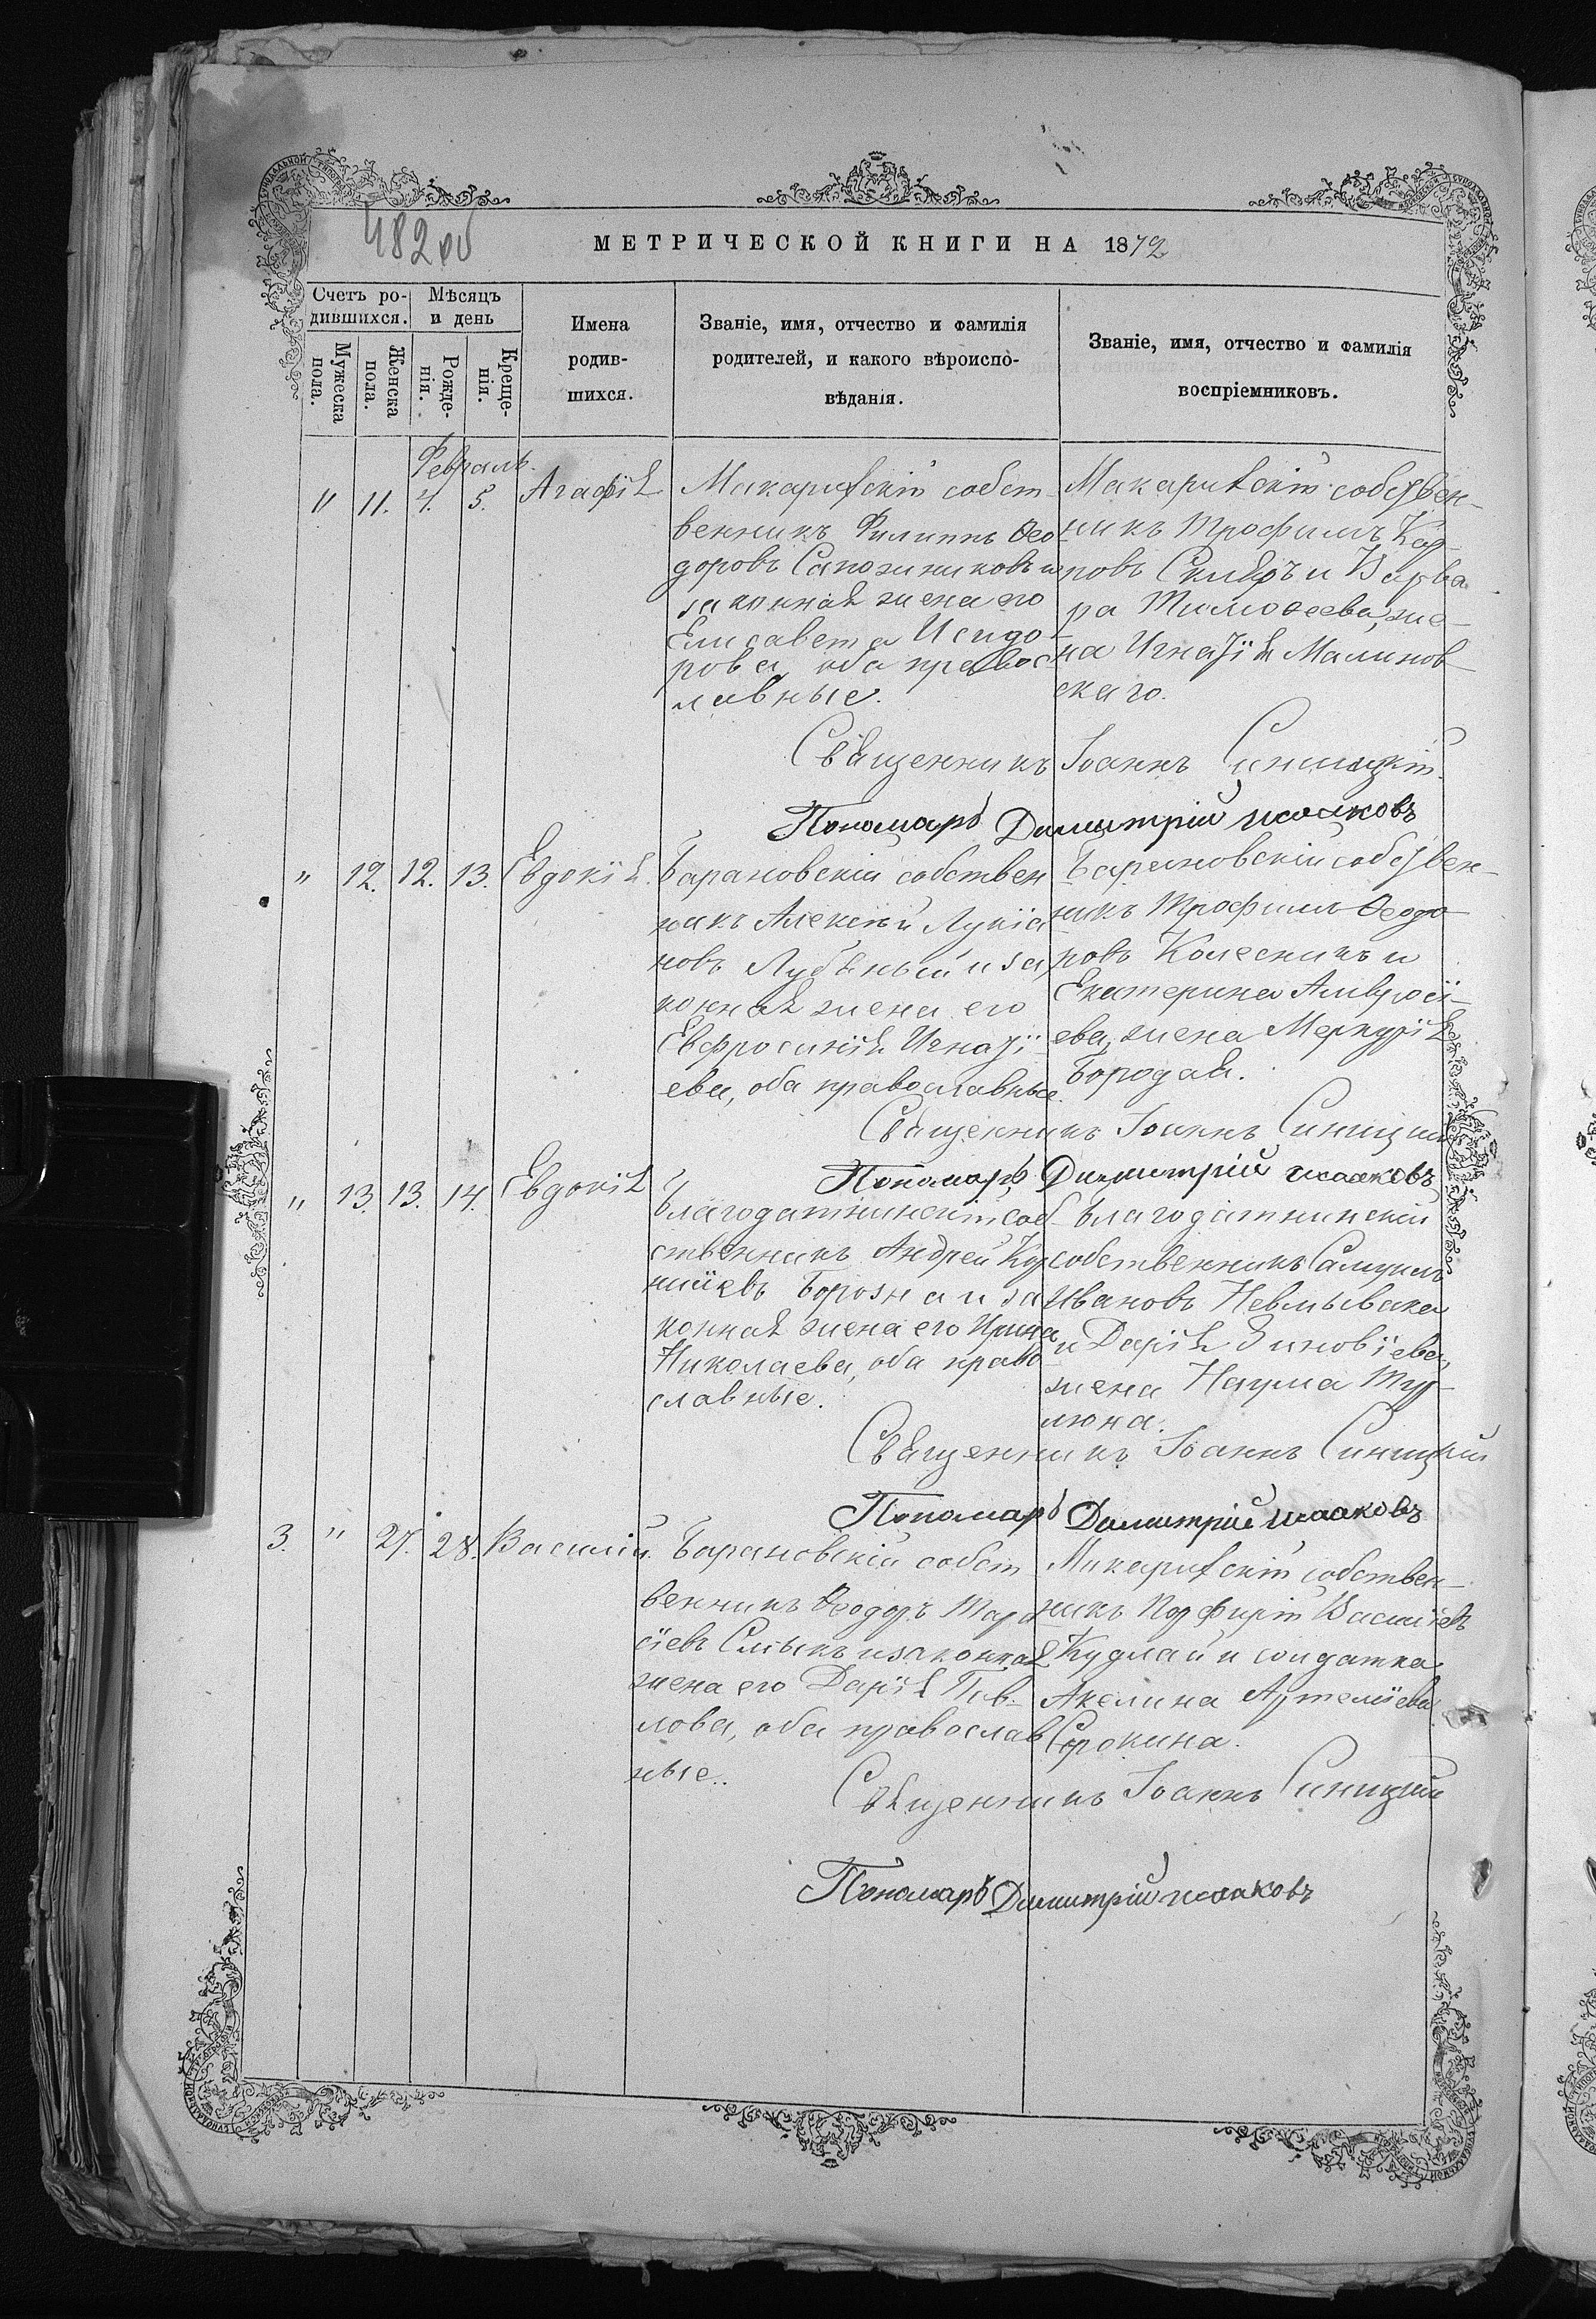 482 об
МЕТРИЧЕСКОЙ КНИГИ НА 1872
Счетъ ро-
дившихся.
Мѣсяцъ
и день
Мужеска
пола.
Женска
пола.
Рожде-
нія.
Креще-
нія.
Имена
родив-
шихся.
Званіе, имя, отчество и фамилія
родителей, и какого вѣроиспо-
вѣданія.
Званіе, имя, отчество и фамилія
воспріемниковъ.
Февраль.
" 11. 4. 5. Агафія
Макаривскій собст-
венникъ Филиппъ Ѳео
доровъ Сапожниковъ и
законная жена его
Елисавета Исидо-
рова, оба правос-
лавные.
Макаривскій собствен-
никъ Трофимъ Кар-
повъ и Варва
ра Тимоѳеева, же-
на Игнатія Малинов-
скаго.
Священникъ Іоаннъ Синицкій.
Пономарь Димитрій Исааковъ
" 12. 12. 13. Евдокія.
Барановскій собствен
никъ Алексѣй Лукіа
новъ Лубяный и за
конная жена его
Евфросинія Игнаті
ева, оба православные.
Барановскій собствен-
никъ Трофимъ Ѳеодо-
ровъ Колесникъ и
Екатерина Амвросі-
ева, жена Меркурія
Бородая.
Священникъ Іоаннъ Синицкій
Пономарь Димитрій Исааковъ
" 13. 13. 14. Евдокія
Благодатнинскій соб-
ственникъ Андрей Кор
ниіевъ Борозна и за
конная жена его Ирина
Николаева, оба право
славные.
Благодатнинскій
собственникъ Самуилъ
Ивановъ Невмывака
и Дарія Зиновіева,
жена Наума Тур-
люна.
Священникъ Іоаннъ Синицкій
Пономарь Димитрій Исааковъ
3. " 27. 28. Василій.
Барановскій собст
венникъ Ѳеодоръ Тара
сіевъ Смыкъ и законная
жена его Дарія Пав-
лова, оба православ
ные..
Макаривскій собствен-
никъ Порфирій Василіевъ
Кудлай и солдатка
Акелина Артеміева
Сорокина.
Священникъ Іоаннъ Синицкій
Пономарь Димитрій Исааковъ